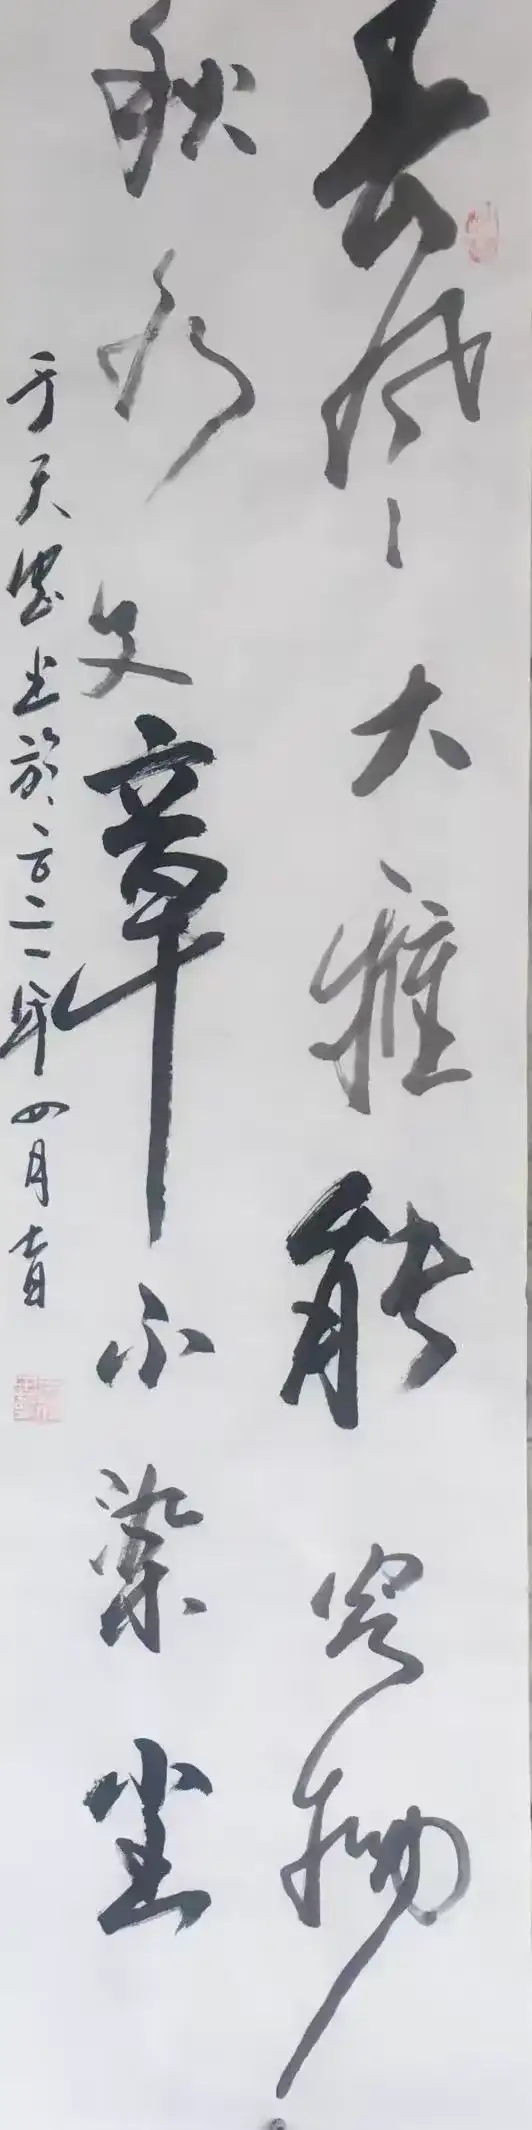 春风大雅能容物
秋水文章不染尘
于天星书於二〇二一年四月吉日